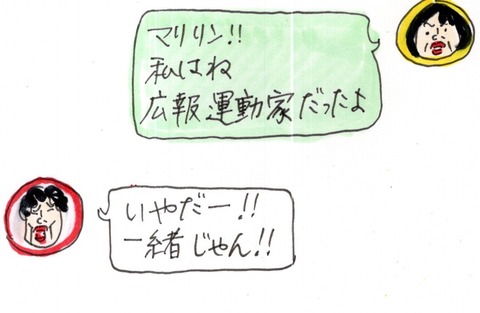 マリリン!!
私はね
広報運動家だったよ
いやだー!!
一緒じゃん!!